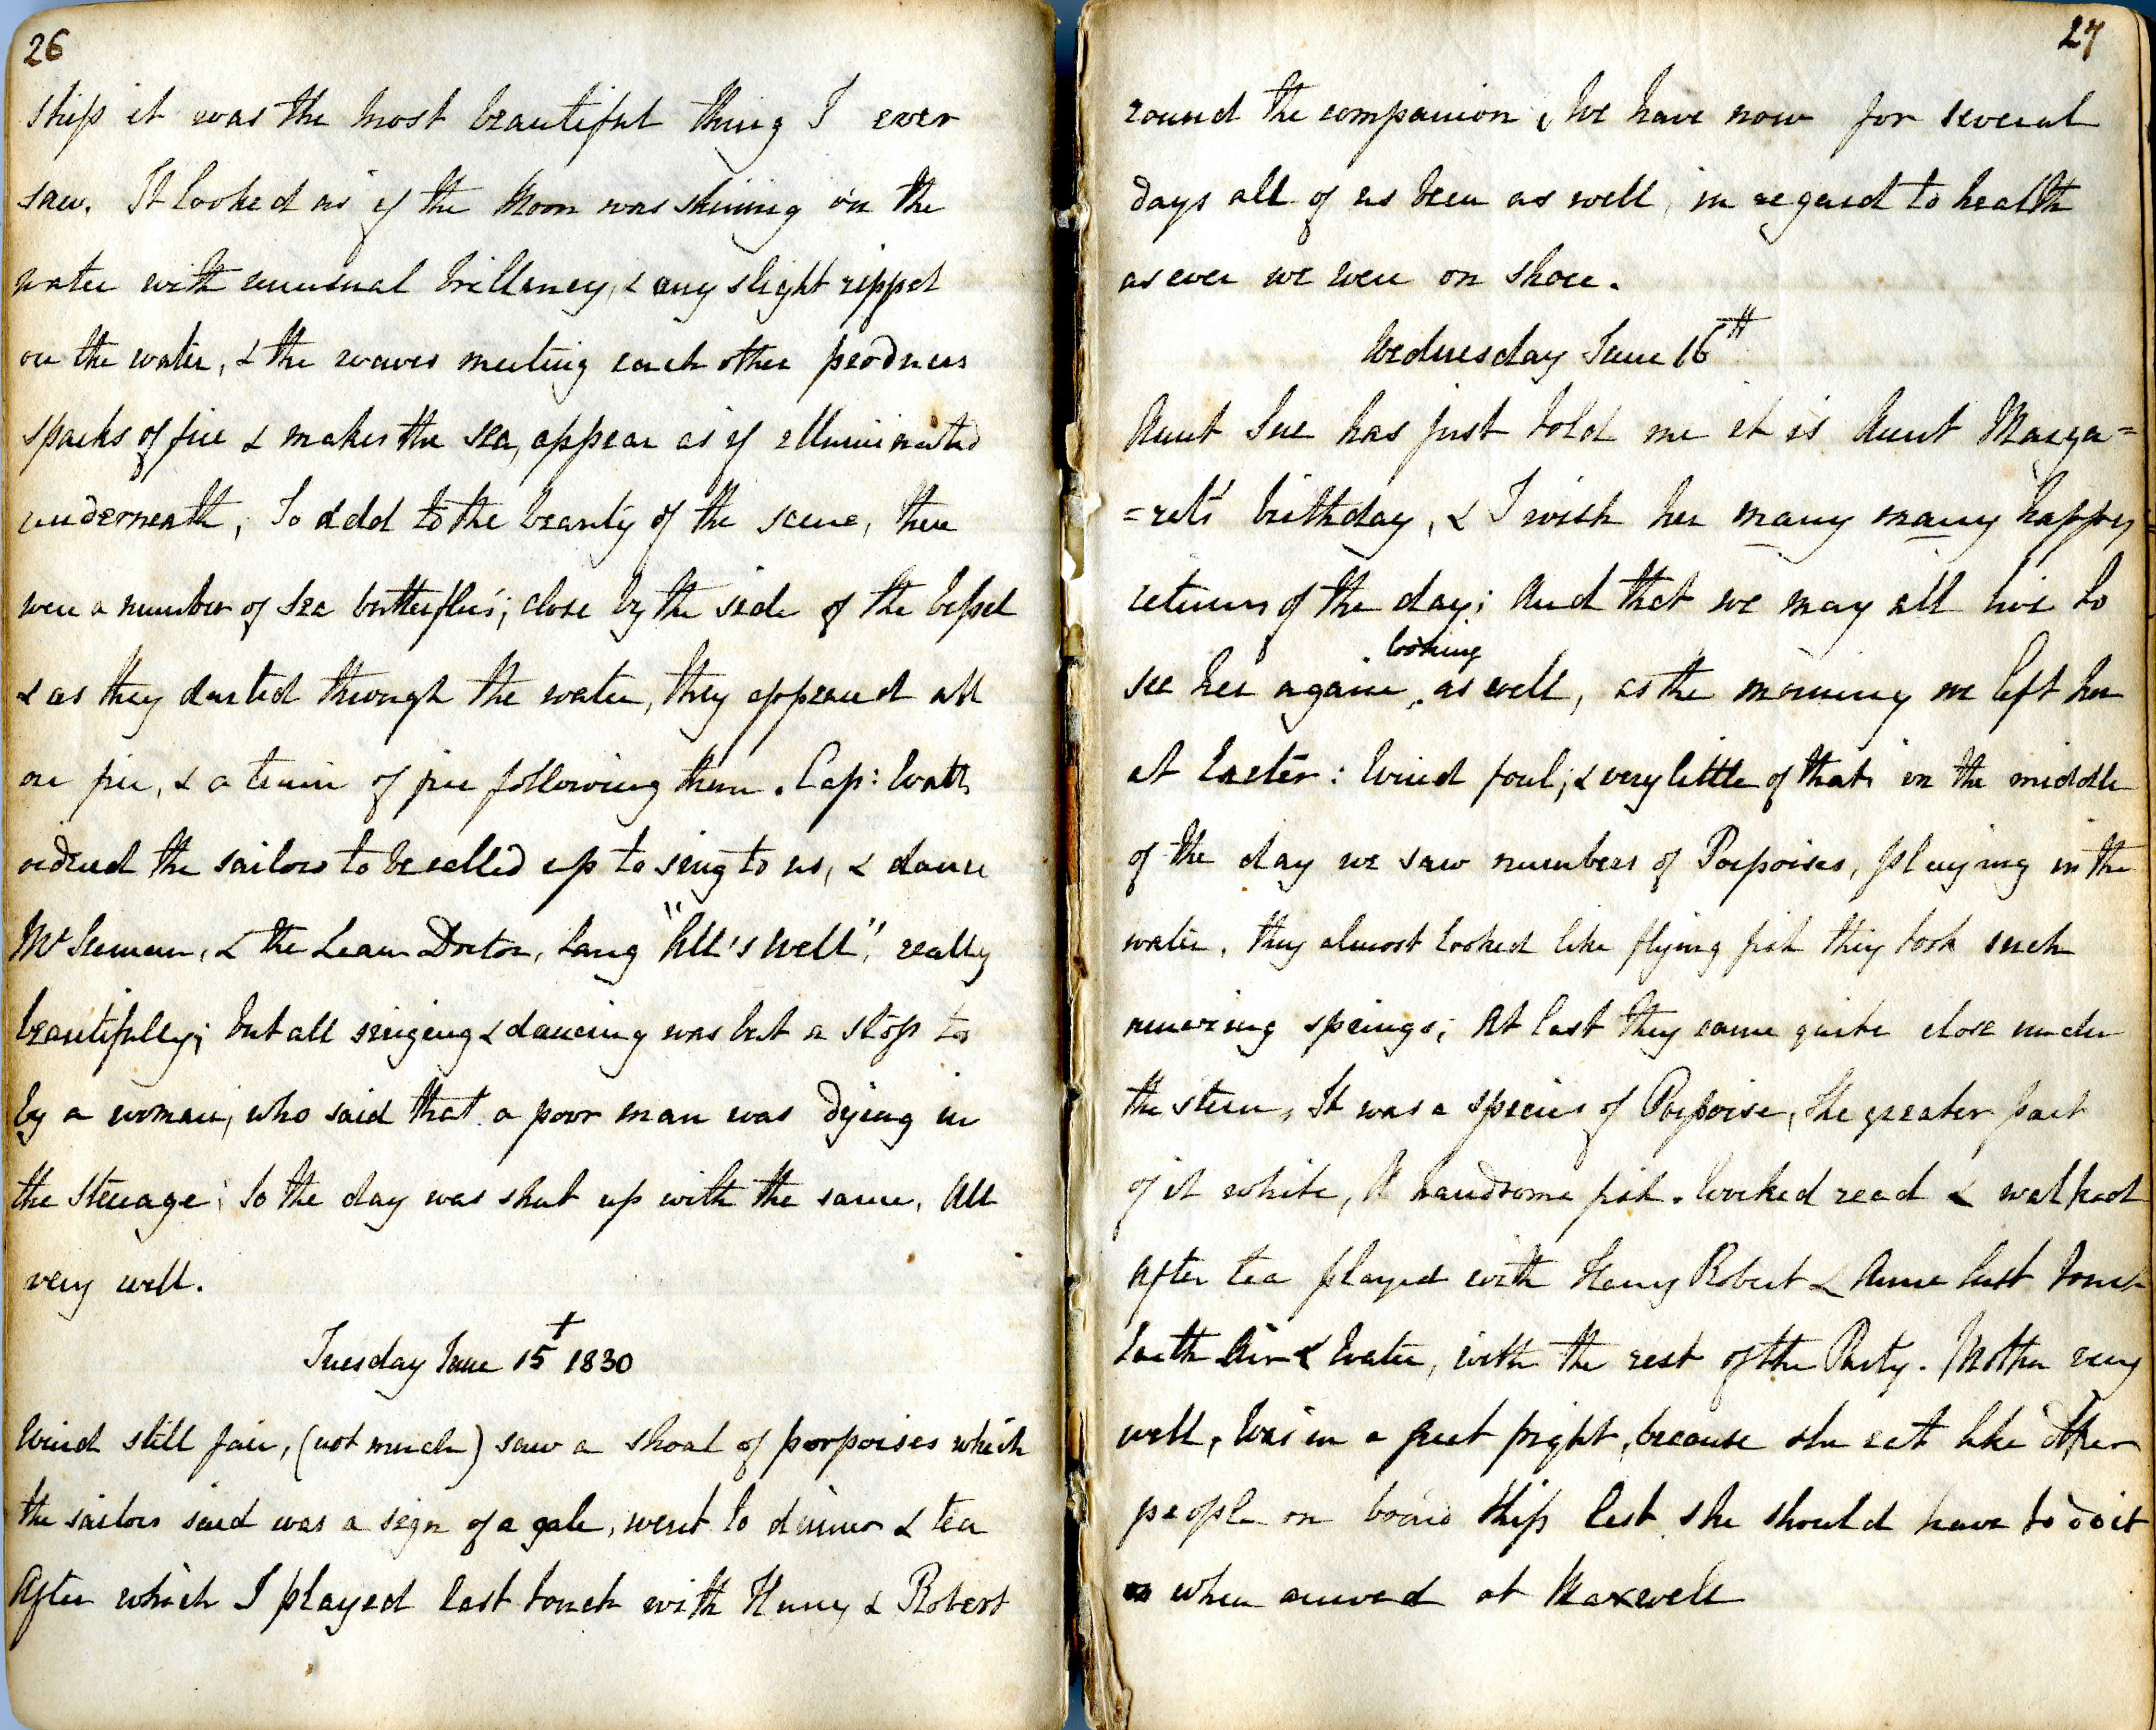 26
ship it was the most beautiful thing I ever
saw. It looked as if the Moon was shining on the
water with unusual brillancy, & any slight rippel
on the water, & the waves meeting each other produces
sparks of fire & makes the sea, appear as if elluminated
underneath, To add to the beauty of the scene, there
were a number of Sea butterflies; close by the side of the Vessel
& as they darted through the water, they appeared all
on fire, & a train of fire following them. Cap: Watts
ordered the sailors to be called up to sing to us, & dance
Mr & the Lean Doctor, sang "All's Well", really
beautifully; but all singing & dancing was but a stop to
by a woman, who said that a poor man was dying in
the Steerage; So the day was shut up with the same, All
very well.
Tuesday June 15t 1830
Wind still fair, (not much) saw a shoal of porpoises which
the sailors said was a sign of a gale, went to dinner & tea
After which I played last touch with Henry & Robert
27
round the companion, We have now for several
days all of us been as well, in regard to health
as ever we were on shore.
Wednesday June 16th
Aunt Sue has just told me it is Aunt Marga=
=ret's birthday, & I wish her many many happy
returns of the day; And that we may all live to
looking
see her again, as well, as the morning we left her
at Exeter: Wind foul; & very little of that; in the middle
of the day we saw numbers of Porpoises, playing in the
water, they almost looked like flying fish they took such
amazing springs; At last they came quite close under
the stern, It was a species of Porpoise, the greater part
of it white, A handsome fish. Worked read & walked
After tea played with Henry Robert & Anne last touch
Earth Air & Water, with the rest of the Party. Mother very
well, Was in a great fright, because she eat like other
people on board Ship lest she should have to do it
when arrived at Maxwell